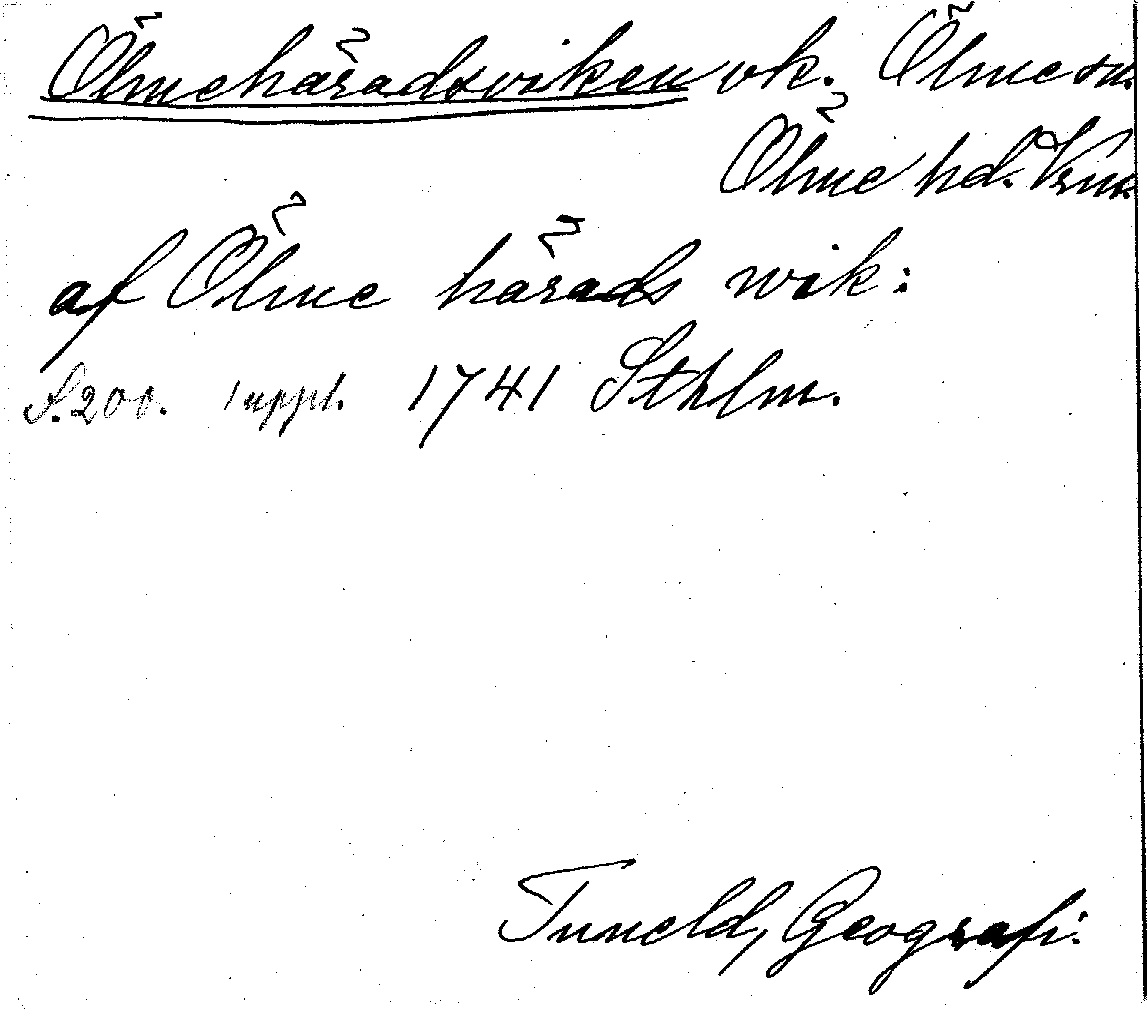 Ölmehäradsviken vk. Ölme sn.
Ölme hd. Vrm.
af Ölme härads wik:
S. 200. 1 uppl. 1741 Sthlm.
Tuneld, Geografi.